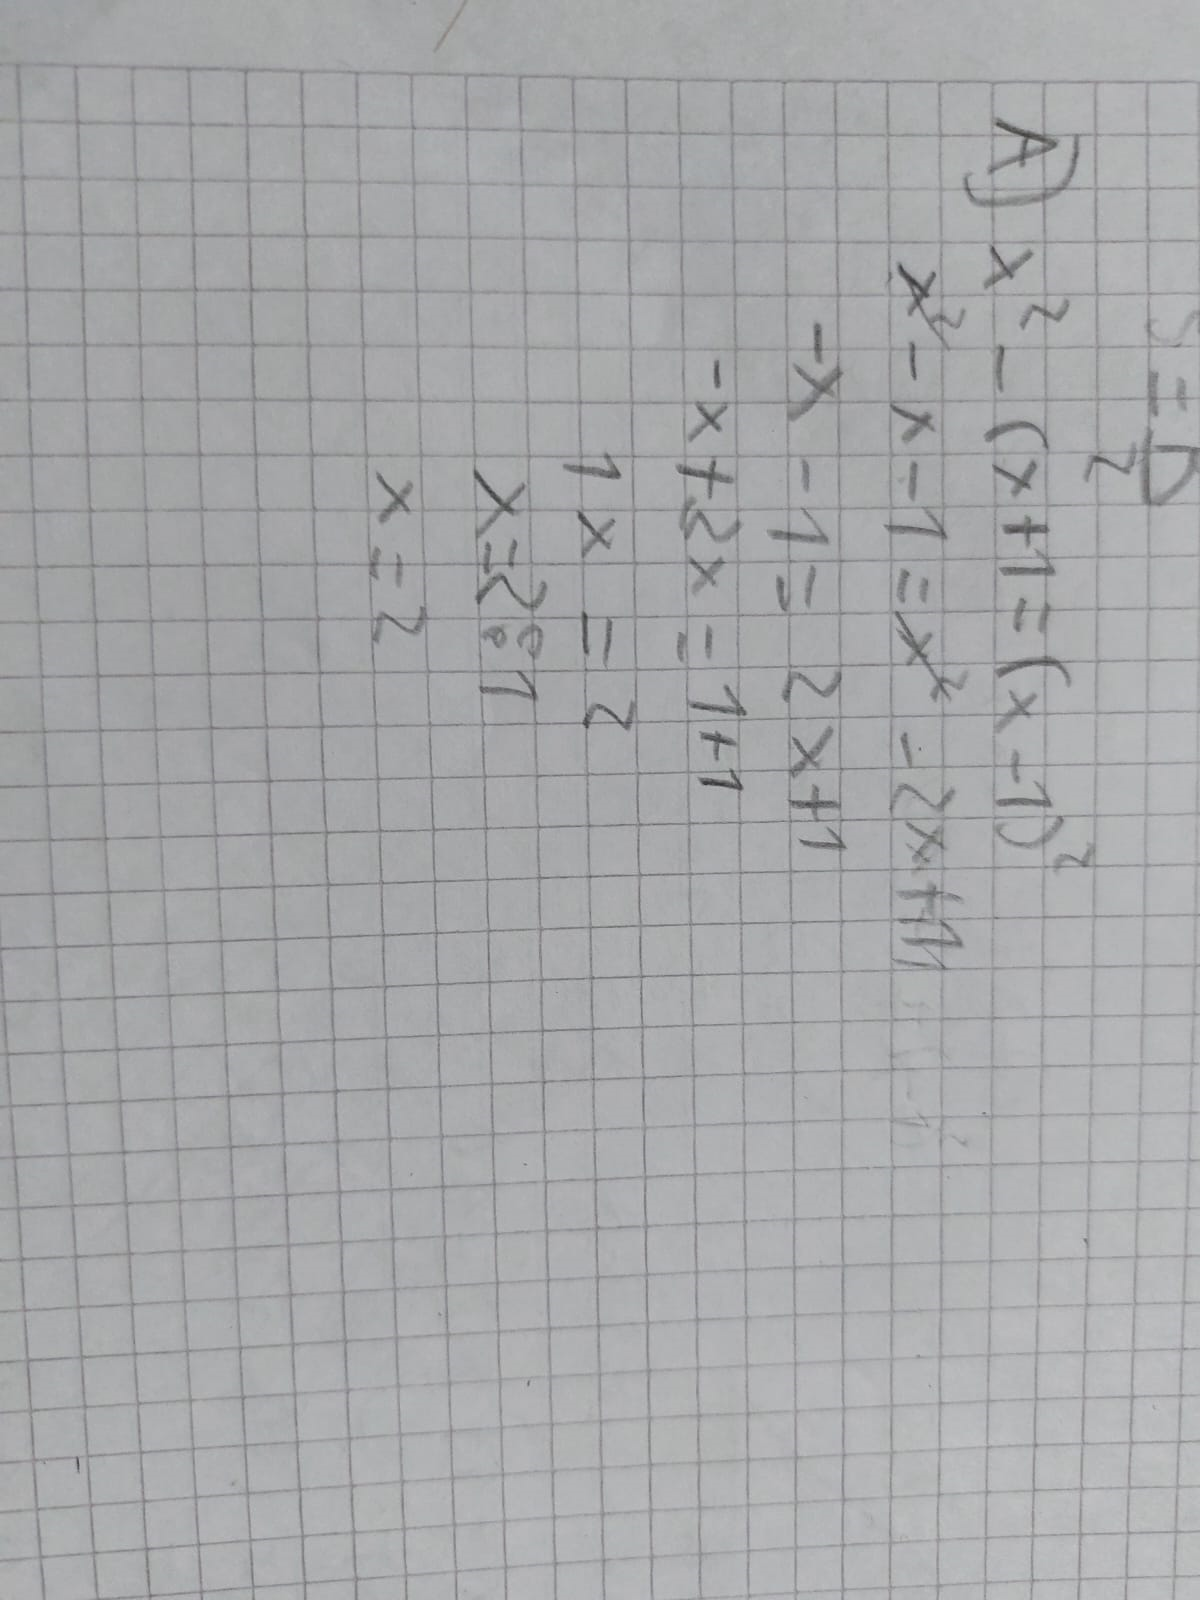 S = D/2
A) x² - (x+1=(x-1)²
x² - x - 1 = x² - 2x+1
-x -1= 2x+1
-x+2x = 1+1
1x = 2
x=2:1
x=2